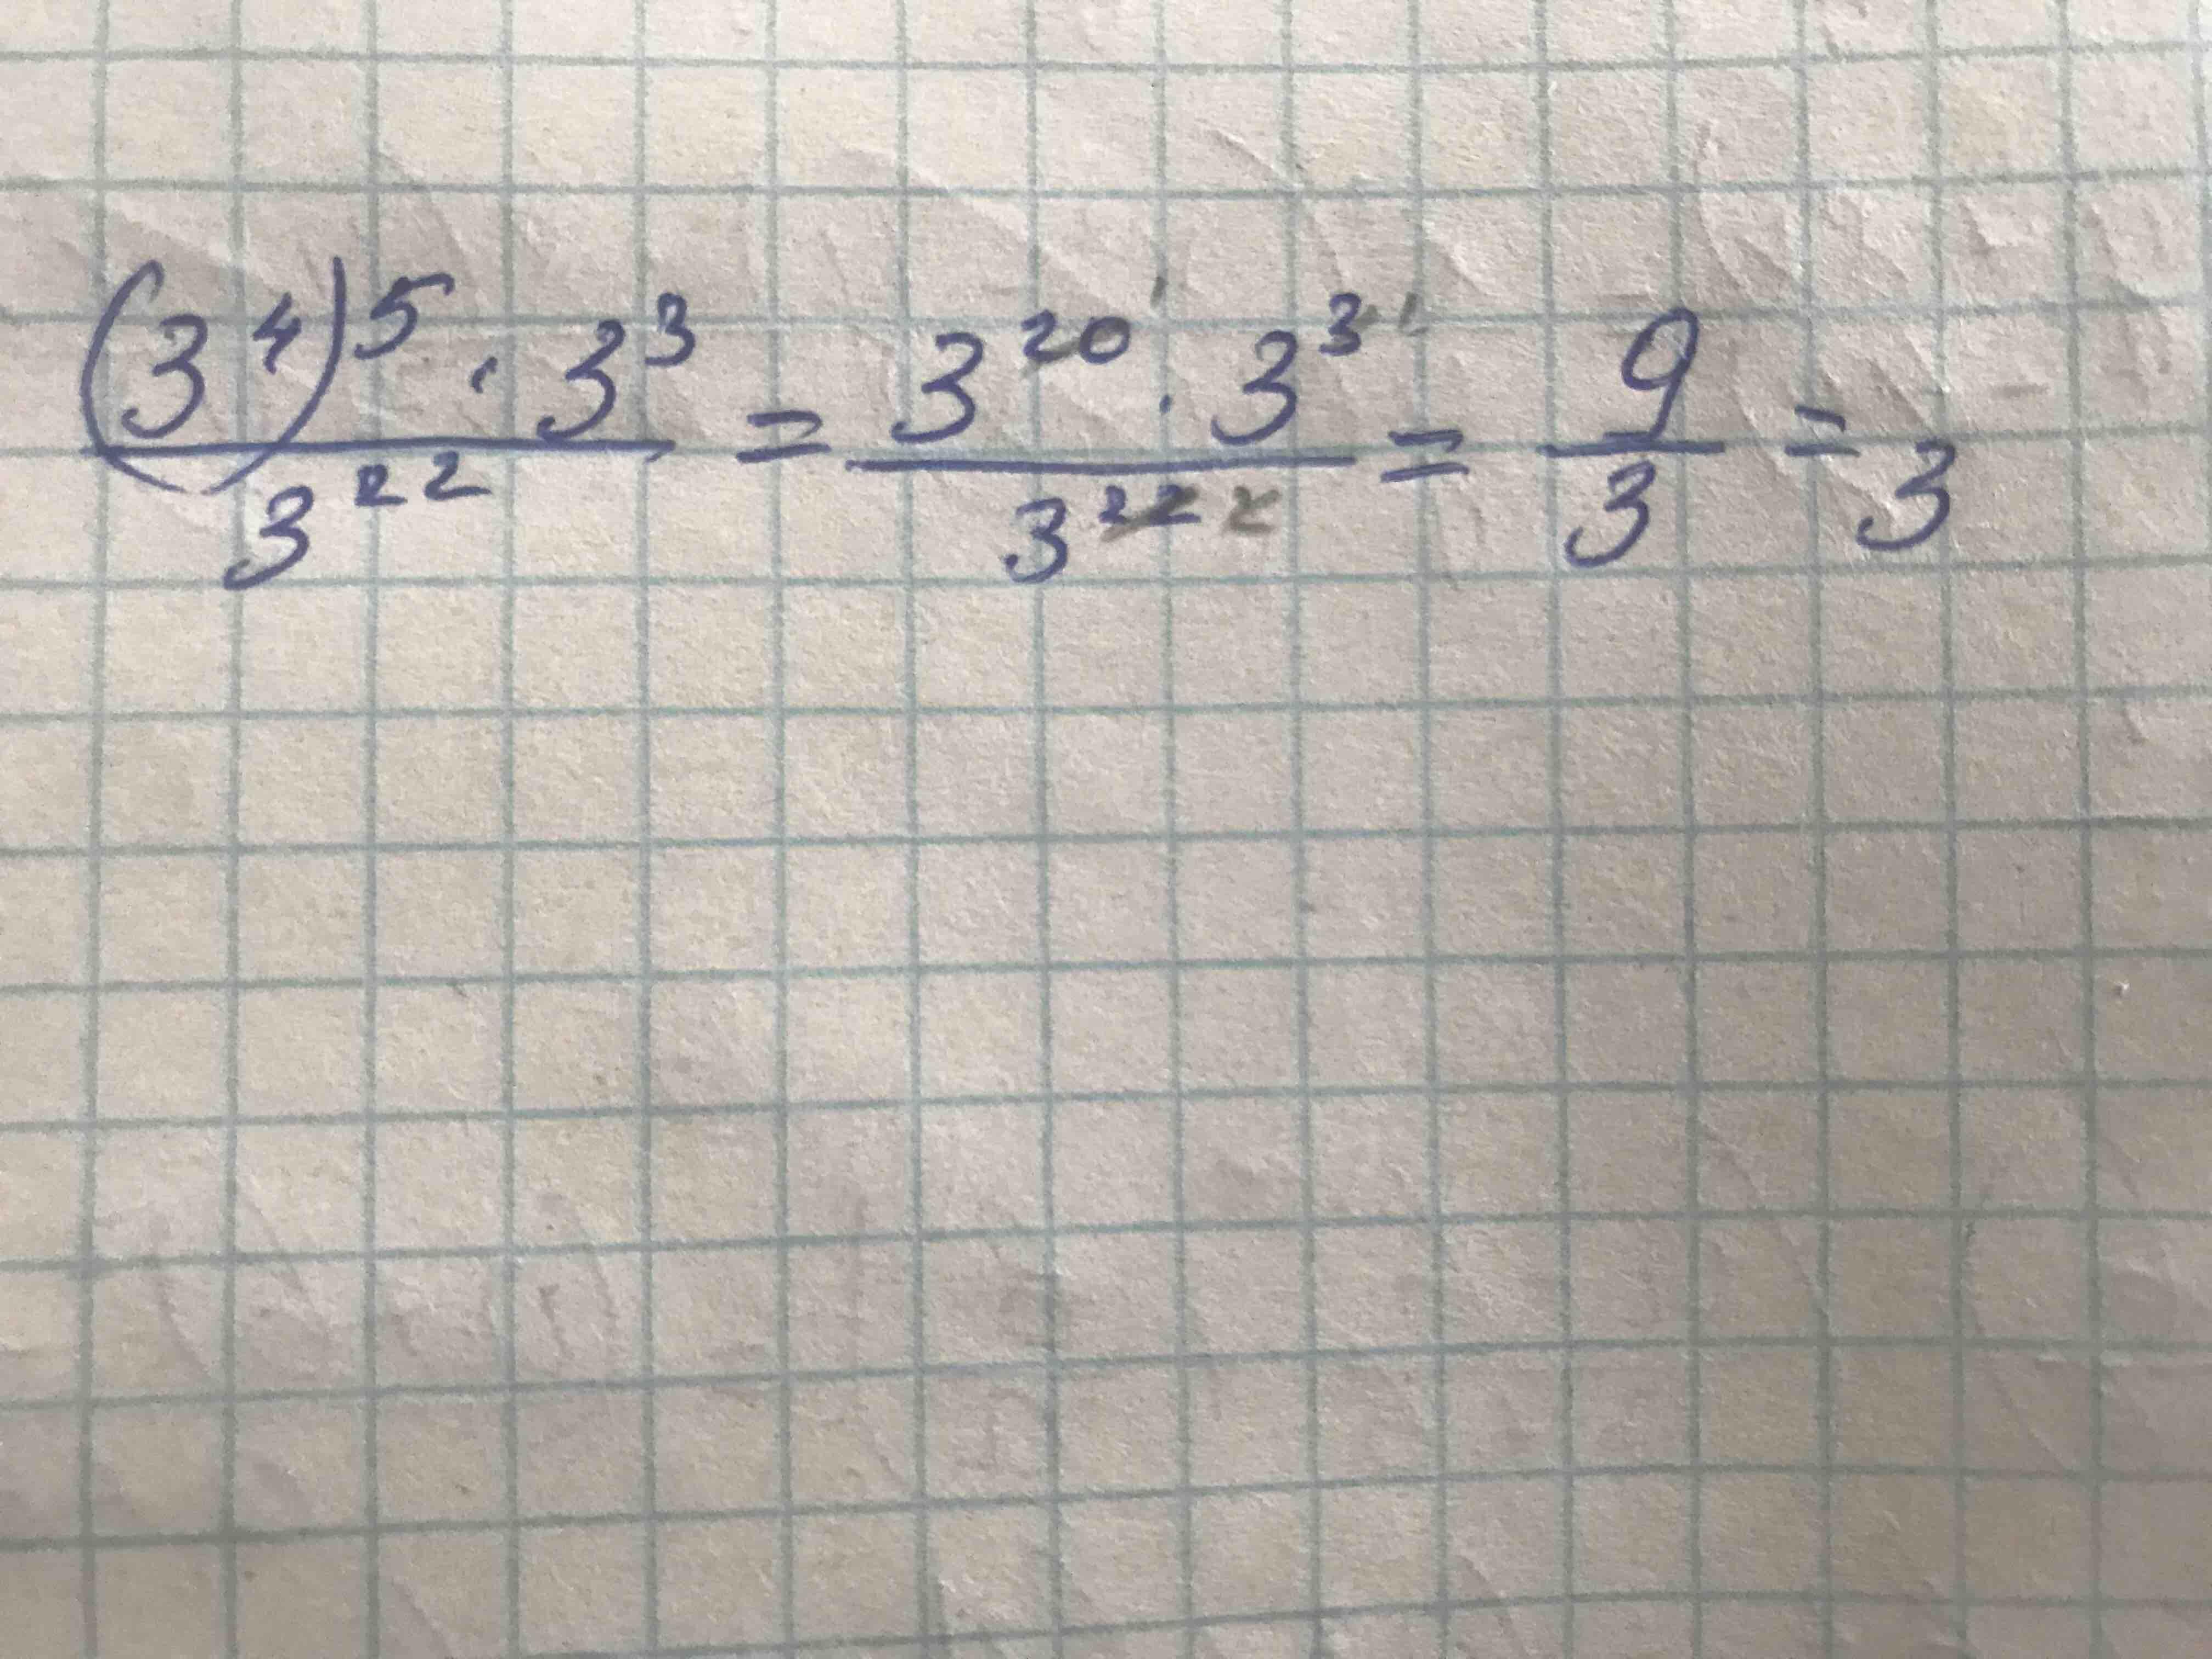 (3⁴)⁵ · 3³ / 3²² = 3²⁰ ¹ · 3³ ¹ / 3²² ² = 9 / 3 = 3